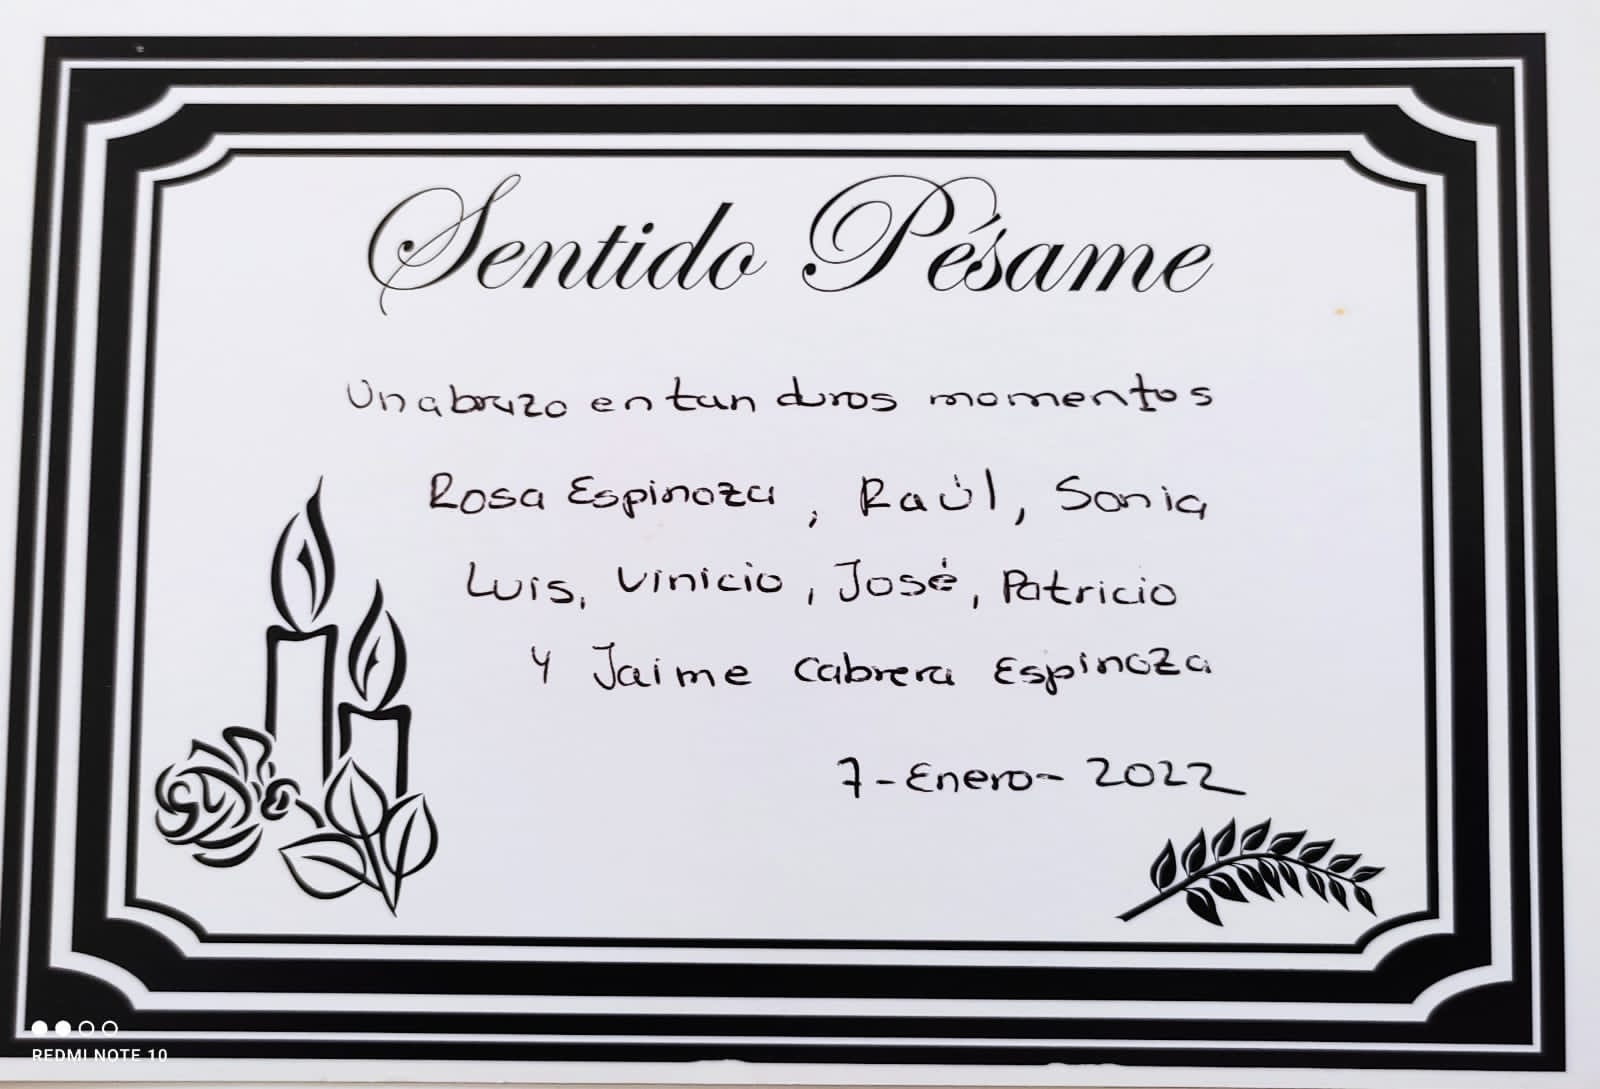 Sentido Pésame
Un abrazo en tan duros momentos
Rosa Espinoza, Raúl, Sonia
Luis, Vinicio, José, Patricio
Y Jaime Cabrera Espinoza
7-Enero-2022
REDMI NOTE 10